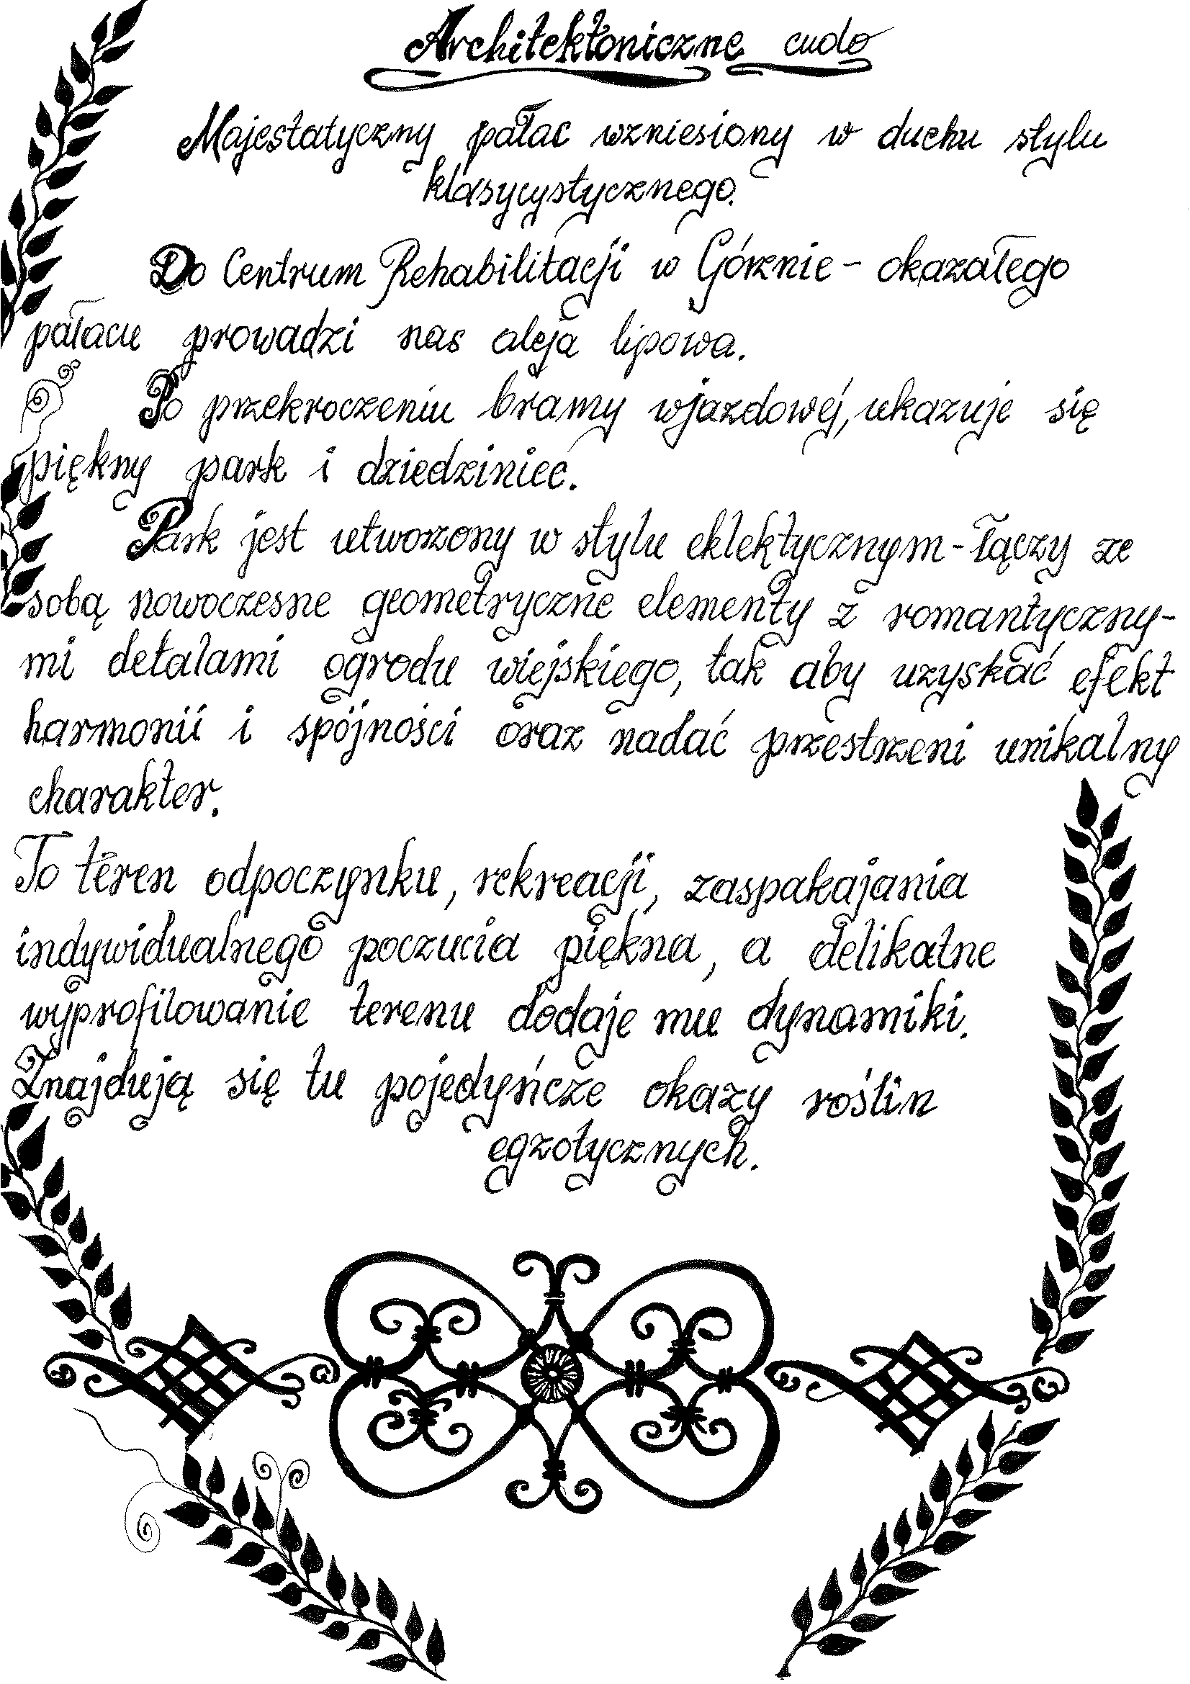 Architektoniczne cudo
Majestatyczny pałac wzniesiony w duchu stylu
klasycystycznego.
Do Centrum Rehabilitacji w Górznie - okazałego
pałacu prowadzi nas aleja lipowa.
Po przekroczeniu bramy wjazdowej, ukazuje się
piękny park i dziedziniec.
Park jest utworzony w stylu eklektycznym - łączy ze
sobą nowoczesne geometryczne elementy z romantyczny-
mi detalami ogrodu wiejskiego, tak aby uzyskać efekt
harmonii i spójności oraz nadać przestrzeni unikalny
charakter.
To teren odpoczynku, rekreacji, zaspakajania
indywidualnego poczucia piękna, a delikatne
wyprofilowanie terenu dodaje mu dynamiki.
Znajdują się tu pojedyńcze okazy roślin
egzotycznych.